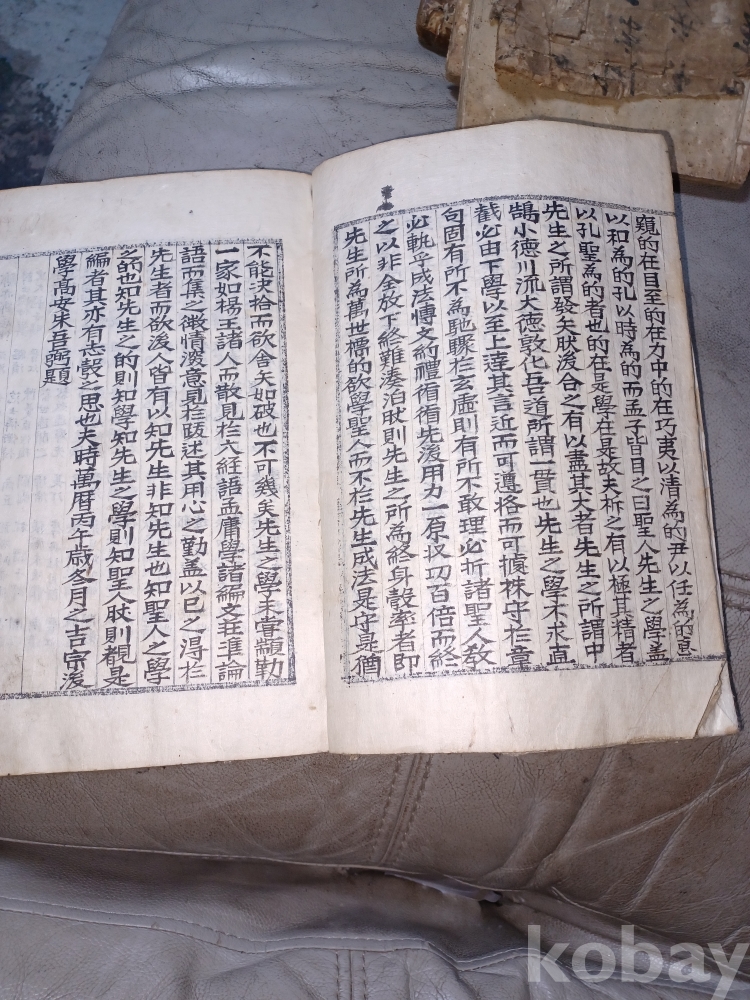 窺的在目至的在力中的在巧夷以清為的尹以任為的惠
以和為的孔以時為的而孟子皆目之曰聖人先生之學盖
以孔聖為的者也的在是學在是故夫析之有以極其精者
先生之所謂發矢肰後合之有以盡其大者先生之所謂中
鵠小德川流大德敦化吾道所謂一貫也先生之學不求直
截必由下學以至上達其言近而可遵格而可據株守於章
句固有所不為馳驟於玄虛則有所不敢理必折諸聖人教
必軌乎成法博文約禮循循先後用力一原収功百倍而終
之以非全放下終難湊泊肰則先生之所為終身彀率者即
先生所為萬世標的欲學聖人而不於先生成法是守是猶
不能決拾而欲舍矢如破也不可幾矣先生之學未嘗顓勒
一家如楊王諸人而散見於六経語孟庸學諸編文莊準論
語而集之微情㴱意見於跋述其用心之勤盖以已之得於
先生者而欲後人皆有以知先生非知先生也知聖人之學
之的也知先生之的則知學知先生之學則知聖人肰則覩是
編者其亦有志彀之思也夫時萬曆丙午歳冬月之吉宗後
學髙安朱吾弼題
kobay